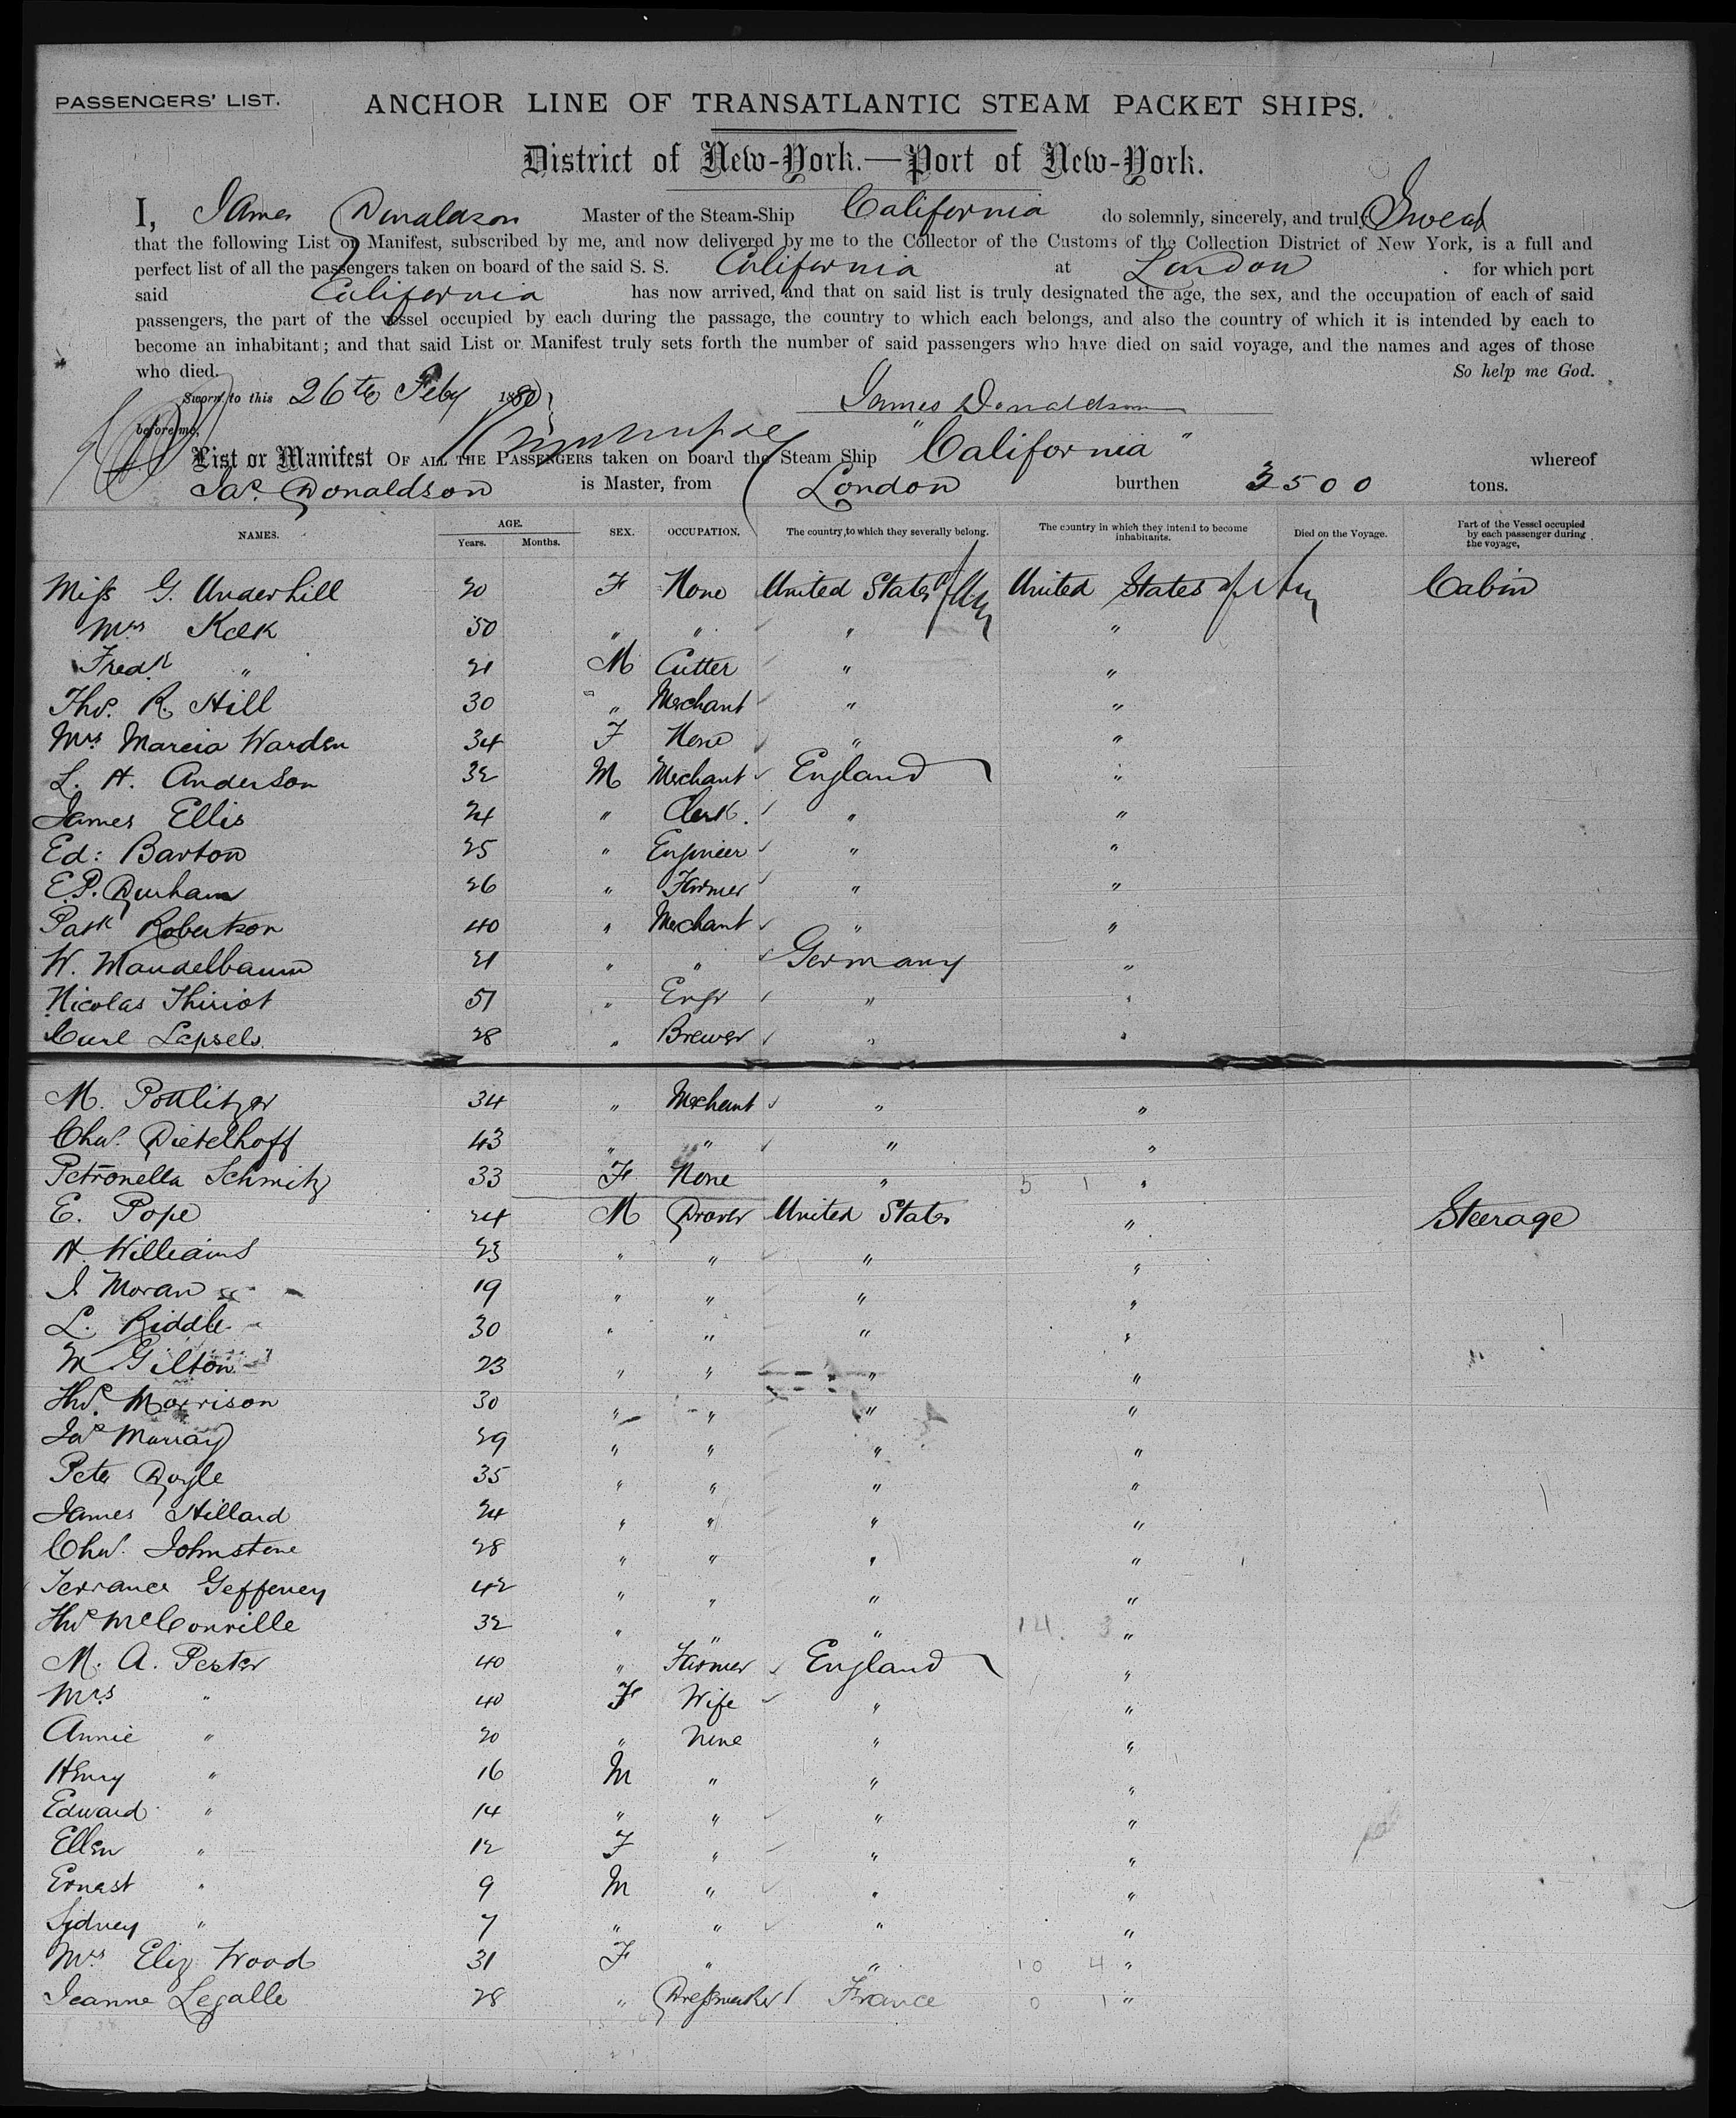 PASSENGERS' LIST.
ANCHOR LINE OF TRANSATLANTIC STEAM PACKET SHIPS.
District of New-York.—Port of New-York.
I, James Donaldson Master of the Steam-Ship California do solemnly, sincerely, and truly Swear
that the following List or Manifest, subscribed by me, and now delivered by me to the Collector of the Customs of the Collection District of New York, is a full and
perfect list of all the passengers taken on board of the said S. S. California at London for which port
said California has now arrived, and that on said list is truly designated the age, the sex, and the occupation of each of said
passengers, the part of the vessel occupied by each during the passage, the country to which each belongs, and also the country of which it is intended by each to
become an inhabitant; and that said List or Manifest truly sets forth the number of said passengers who have died on said voyage, and the names and ages of those
who died. So help me God.
Sworn to this 26th Feby 1880 James Donaldson
before me,
List or Manifest OF ALL THE PASSENGERS taken on board the Steam Ship "California" whereof
Jas. Donaldson is Master, from London burthen 3500 tons.
NAMES. AGE. Years. Months. SEX. OCCUPATION. The country to which they severally belong. The country in which they intend to become inhabitants. Died on the Voyage. Part of the Vessel occupied by each passenger during the voyage.
Miss G. Underhill 20 F None United States of United States of Cabin
Mrs 50 " " " "
Fredk " 21 M Cutter " "
Thos. R. Hill 30 " Merchant " "
Mrs Marcia Warden 34 F None " "
L. H. Anderson 32 M Merchant England "
James Ellis 24 " Clerk. " "
Ed: Barton 25 " Engineer " "
E.P. Durham 26 " Farmer " "
Patk Robertson 40 " Merchant " "
W. Mandelbaum 21 " " Germany "
Nicolas Thiriot 51 " Engr " "
Carl 28 " Brewer " "
M. Pottlitzer 34 " Merchant " "
Chas. Dietelhoff 43 " " " "
Petronella Schmitz 33 F None " 5 1 "
E. Pope 24 M Drover United States " Steerage
H. Williams 23 " " " "
J Moran 19 " " " "
L. Riddle 30 " " " "
M Gilton 23 " " " "
Thos. Morrison 30 " " " "
Jas Murray 29 " " " "
Peter Doyle 35 " " " "
James Hillard 24 " " " "
Chas. Johnstone 28 " " " "
Terrance Geffeney 42 " " " "
Thos McConville 32 " " " 14. 3 "
M. A. Pester 40 " Farmer England "
Mrs " 40 F Wife " "
Annie " 20 " None " "
Henry " 16 M " " "
Edward " 14 " " " "
Ellen " 12 F " " "
Ernest " 9 M " " "
Sydney " 7 " " " "
Mrs Eliz Wood 31 F " " 10 4 "
Jeanne Legalle 28 " Dressmaker France 0 1 "